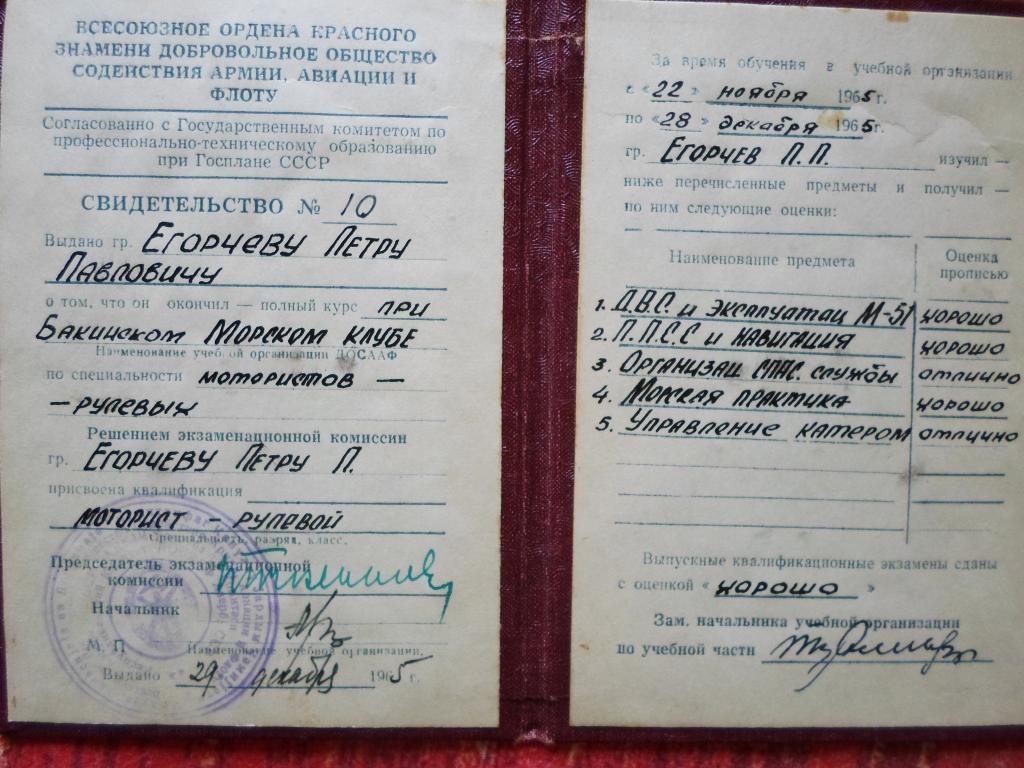 ВСЕСОЮЗНОЕ ОРДЕНА КРАСНОГО
ЗНАМЕНИ ДОБРОВОЛЬНОЕ ОБЩЕСТВО
СОДЕЙСТВИЯ АРМИИ, АВИАЦИИ И
ФЛОТУ
Согласованно с Государственным комитетом по
профессионально-техническому образованию
при Госплане СССР
СВИДЕТЕЛЬСТВО № 10
Выдано гр. ЕГОРЧЕВУ ПЕТРУ
ПАВЛОВИЧУ
о том, что он окончил — полный курс ПРИ
БАКИНСКОМ МОРСКОМ КЛУБЕ
Наименование учебной организации ДОСААФ
по специальности МОТОРИСТОВ —
— РУЛЕВЫХ
Решением экзаменационной комиссии
гр. ЕГОРЧЕВУ ПЕТРУ П.
присвоена квалификация
МОТОРИСТ - РУЛЕВОЙ
Специальность, разряд, класс.
Председатель экзаменационной
комиссии
Начальник
М. П. Наименование учебной организации.
Выдано 29 декабря 1965 г.
За время обучения в учебной организации
с «22» ноября 1965 г.
по «28» декабря 1965 г.
гр. ЕГОРЧЕВ П.П. изучил —
ниже перечисленные предметы и получил —
по ним следующие оценки:
Наименование предмета Оценка прописью
1. Д.В.С. и ЭКСПЛУАТАЦ М-51 хорошо
2. П.П.С.С и НАВИГАЦИЯ хорошо
3. ОРГАНИЗАЦ СПАС. СЛУЖБЫ отлично
4. МОРСКАЯ ПРАКТИКА хорошо
5. УПРАВЛЕНИЕ КАТЕРОМ отлично
Выпускные квалификационные экзамены сданы
с оценкой «хорошо»
Зам. начальника учебной организации
по учебной части